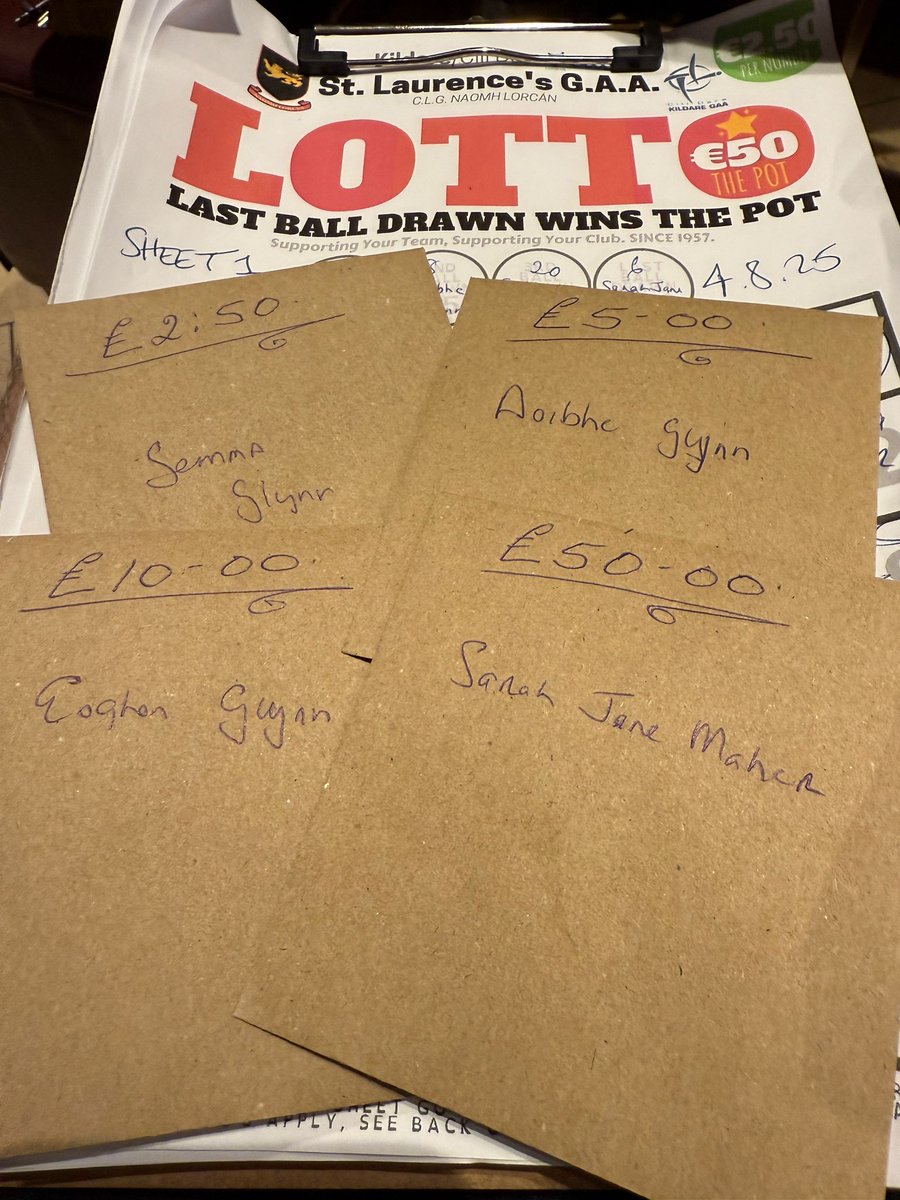 St. Laurence's G.A.A.
C.L.G. NAOMH LORCÁN
KILDARE GAA
€2.50
PER NUMBER
LOTTO
€50
THE POT
LAST BALL DRAWN WINS THE POT
Supporting Your Team, Supporting Your Club. SINCE 1957.
SHEET 1
8
20
6
Sarah Jane
4.8.25
£2:50
Gemma
Glynn
£5-00
Aoibhe Glynn
£10-00
Eoghan Glynn
£50-00
Sarah Jane Maher
APPLY, SEE BACK